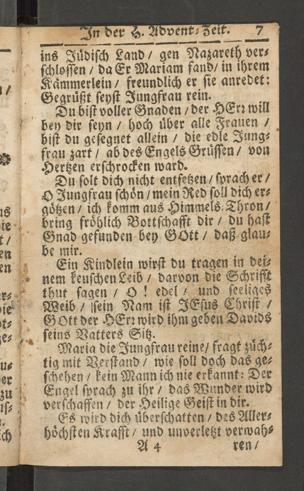 In der H. Advent-Zeit. 7
ins Jüdisch Land / gen Nazareth ver-
schlossen / da Er Mariam fand / in ihrem
Kämmerlein / freundlich er sie anredet:
Gegrüßt seyst Jungfrau rein.
Du bist voller Gnaden / der HErr will
bey dir seyn / hoch über alle Frauen /
bist du gesegnet allein / die edle Jung-
frau zart / ab des Engels Grüssen / von
Hertzen erschrocken ward.
Du solt dich nicht entsetzen / sprach er /
O Jungfrau schön / mein Red soll dich er-
götzen / ich komm aus Himmels-Thron /
bring fröhlich Bottschafft dir / du hast
Gnad gefunden bey GOtt / daß glau-
be mir.
Ein Kindlein wirst du tragen in dei-
nem keuschen Leib / darvon die Schrifft
thut sagen / O! edel / und seeliges
Weib / sein Nam ist JEsus Christ /
GOtt der HErr wird ihm geben Davids
seins Vatters Sitz.
Maria die Jungfrau reine / fragt züch-
tig mit Verstand / wie soll doch das ge-
schehen / kein Mann ich nie erkannt: Der
Engel sprach zu ihr / das Wunder wird
verschaffen / der Heilige Geist in dir.
Es wird dich überschatten / des Aller-
höchsten Krafft / und unverletzt verwah-
A 4 ren /